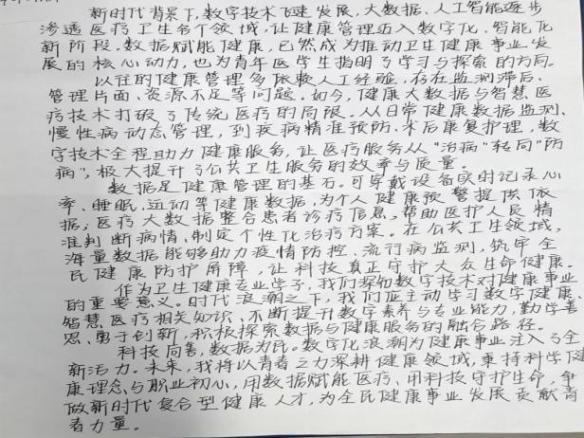 新时代背景下,数字技术飞速发展,大数据、人工智能逐步
渗透医疗卫生各个领域,让健康管理迈入数字化、智能化
新阶段。数据赋能健康,已然成为推动卫生健康事业发
展的核心动力,也为青年医学生指明了学习与探索的方向。
以往的健康管理多依赖人工经验,存在监测滞后、
管理片面、资源不足等问题。如今,健康大数据与智慧医
疗技术打破了传统医疗的局限。从日常健康数据监测、
慢性病动态管理,到疾病精准预防、术后康复护理,数
字技术全程助力健康服务,让医疗服务从“治病”转向“防
病”,极大提升了公共卫生服务的效率与质量。
数据是健康管理的基石。可穿戴设备实时记录心
率、睡眠、运动等健康数据,为个人健康预警提供依
据;医疗大数据整合患者诊疗信息,帮助医护人员精
准判断病情、制定个性化治疗方案。在公共卫生领域,
海量数据能够助力疫情防控、流行病监测,筑牢全
民健康防护屏障,让科技真正守护大众生命健康。
作为卫生健康专业学子,我们深知数字技术对健康事业
的重要意义。时代浪潮之下,我们应主动学习数字健康、
智慧医疗相关知识、不断提升数字素养与专业能力,勤学善
思、勇于创新,积极探索数据与健康服务的融合路径。
科技向善,数据为民。数字化浪潮为健康事业注入了全
新活力。未来,我将以青春之力深耕健康领域,秉持科学健
康理念与职业初心,用数据赋能医疗、用科技守护生命,争
做新时代复合型健康人才,为全民健康事业发展贡献青
春力量。